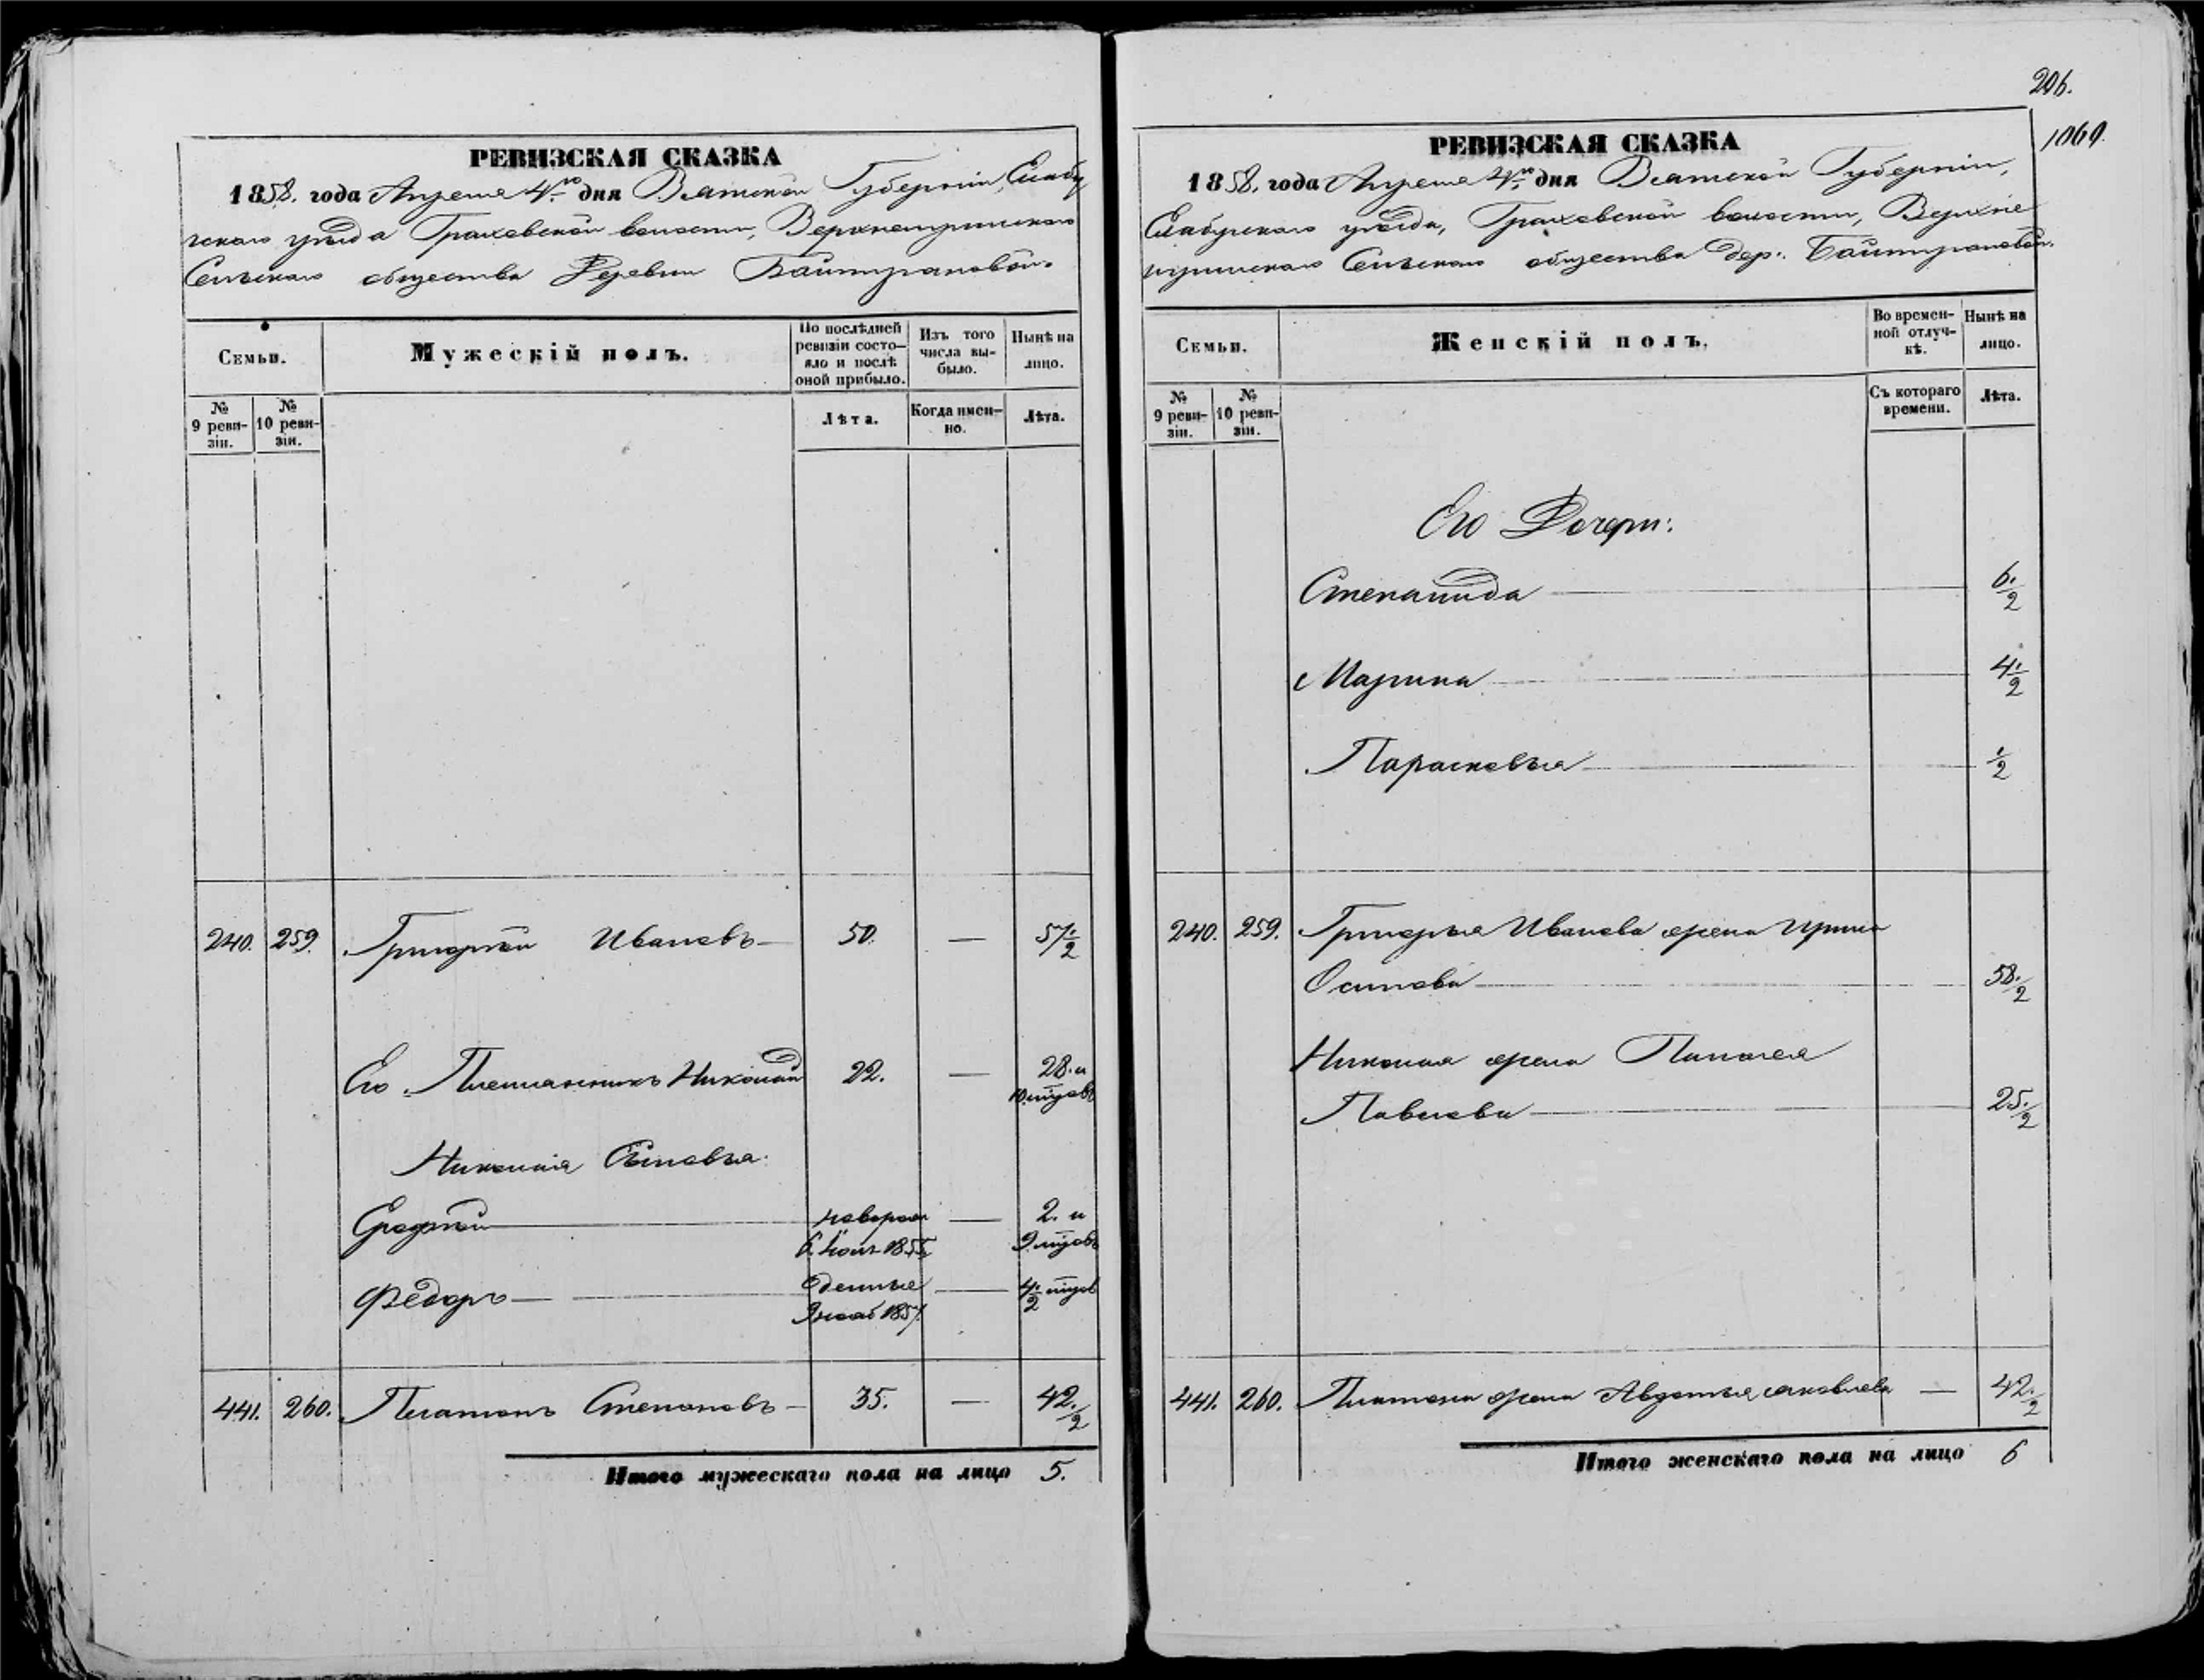 РЕВИЗСКАЯ СКАЗКА
1858. года Апреля 4го дня Вятской Губернiи, Елабу
жскаго уѣзда Граховской волости,
Сельскаго общества Деревни Баитграновой.
Семьи.
Мужескiй полъ.
По послѣдней ревизiи состо-яло и послѣ оной прибыло.
Изъ того числа вы-было.
Нынѣ на лицо.
№ 9 реви-зiи.
№ 10 реви-зiи.
Лѣта.
Когда имен-но.
Лѣта.
240. 259. Григорiй Ивановъ 50. — 57½
Его Племянникъ Николай 22. — 28. и
10. мѣсяцовъ
Николая Сыновья:
новорож — 2. и
1855 9 мѣсяцовъ
Федоръ — 4½ мѣсяцов
9 нояб 1857.
441. 260. Платонъ Степановъ 35. — 42.½
Итого мужескаго пола на лицо 5.
206.
1069.
РЕВИЗСКАЯ СКАЗКА
1858. года Апреля 4го дня Вятской Губернiи,
Елабужскаго уѣзда, Граховской волости, Верхне
Сельскаго общества дер:
Семьи.
Женскiй полъ.
Во времен-ной отлуч-кѣ.
Нынѣ на лицо.
№ 9 реви-зiи.
№ 10 реви-зiи.
Съ котораго времени.
Лѣта.
Его Дочери:
Степанида 6.½
Марина 4½
Парасковья ½
240. 259. Григорья Иванова жена Ирина
Осипова 58.½
Николая жена Пелагея
Павлова 25.½
441. 260. Платона жена Авдотья Яковлева — 42.½
Итого женскаго пола на лицо 6